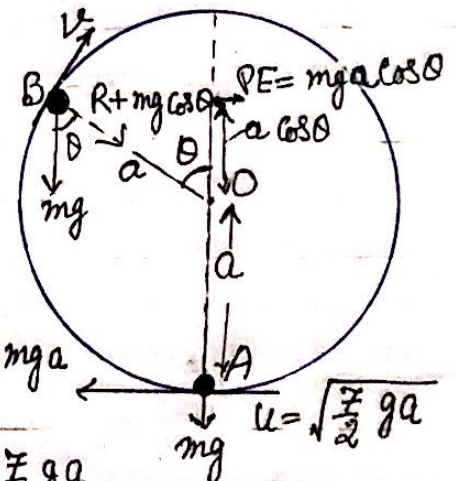 v
B R+mgcosθ PE= mgacosθ
θ a θ a cosθ
mg O
a
mga A
u=√7/2 ga
mg
7 ga